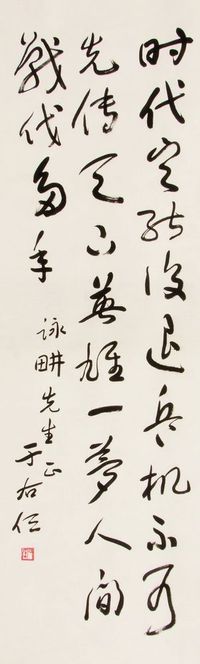 时代岂能後退兵机不可
先传天下英雄一梦人间
戰伐多年
詠畊先生正
于右任